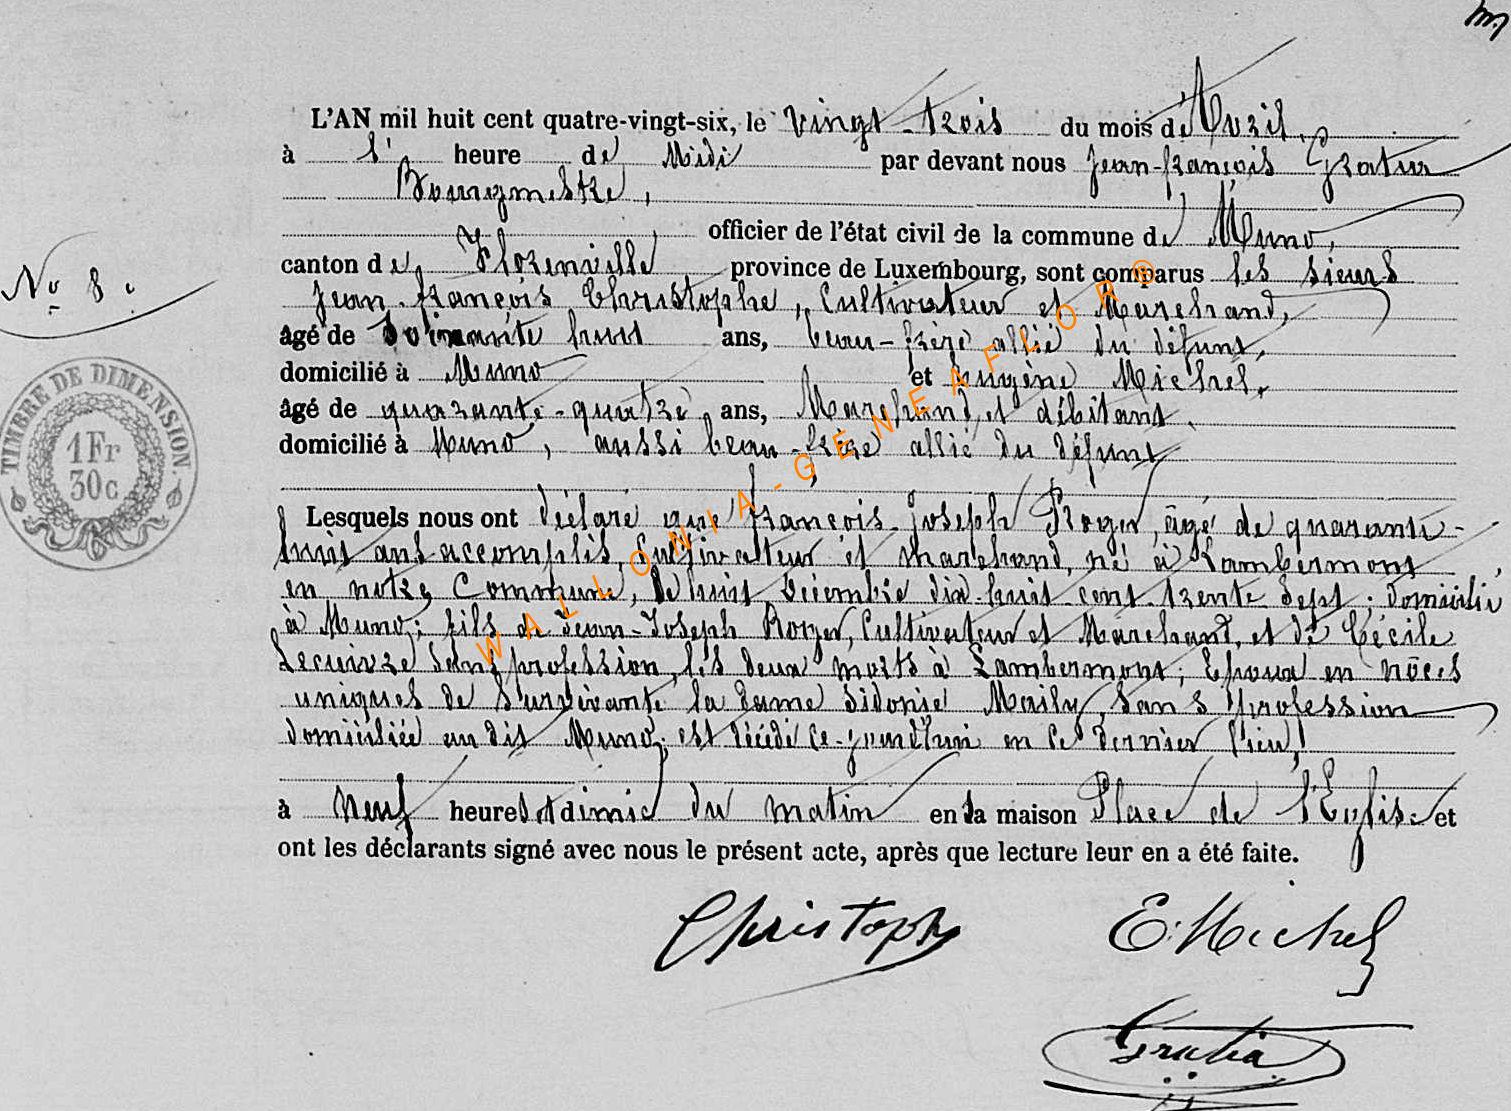 L'AN mil huit cent quatre-vingt-six, le vingt-trois du mois de Avril,
à l' heure de Midi par devant nous Jean-françois
Bourgmestre,
officier de l'état civil de la commune de Muno,
canton de Florenville, province de Luxembourg, sont comparus les sieurs
N° 8.
Jean-françois Christophe, Cultivateur et Marchand,
âgé de soixante huit ans, beau-frère allié du défunt,
domicilié à Muno et Eugène Michel,
âgé de quarante-quatre ans, Marchand et débitant,
domicilié à Muno, aussi beau-frère allié du défunt
TIMBRE DE DIMENSION
1 Fr
30 c
Lesquels nous ont déclaré que françois-joseph Roger, âgé de quarante-
huit ans accomplis, Cultivateur et marchand, né à Lambermont,
en notre Commune, le huit Décembre dix-huit-cent-trente sept; domicilié
à Muno; fils de Jean-Joseph Roger, Cultivateur et Marchand, et de Cécile
Lecuivre sans profession, les deux morts à Lambermont; Epoux en nôces
uniques de Survivante la dame Sidonie Maily, Sans profession
domiciliée au dit Muno; est décédé ce-jourd'hui en ce dernier lieu,
à neuf heures et demie du matin en la maison Place de l'Eglise et
ont les déclarants signé avec nous le présent acte, après que lecture leur en a été faite.
Christophe E. Michel
Gratia
WALLONIA-GENEAFLOR®